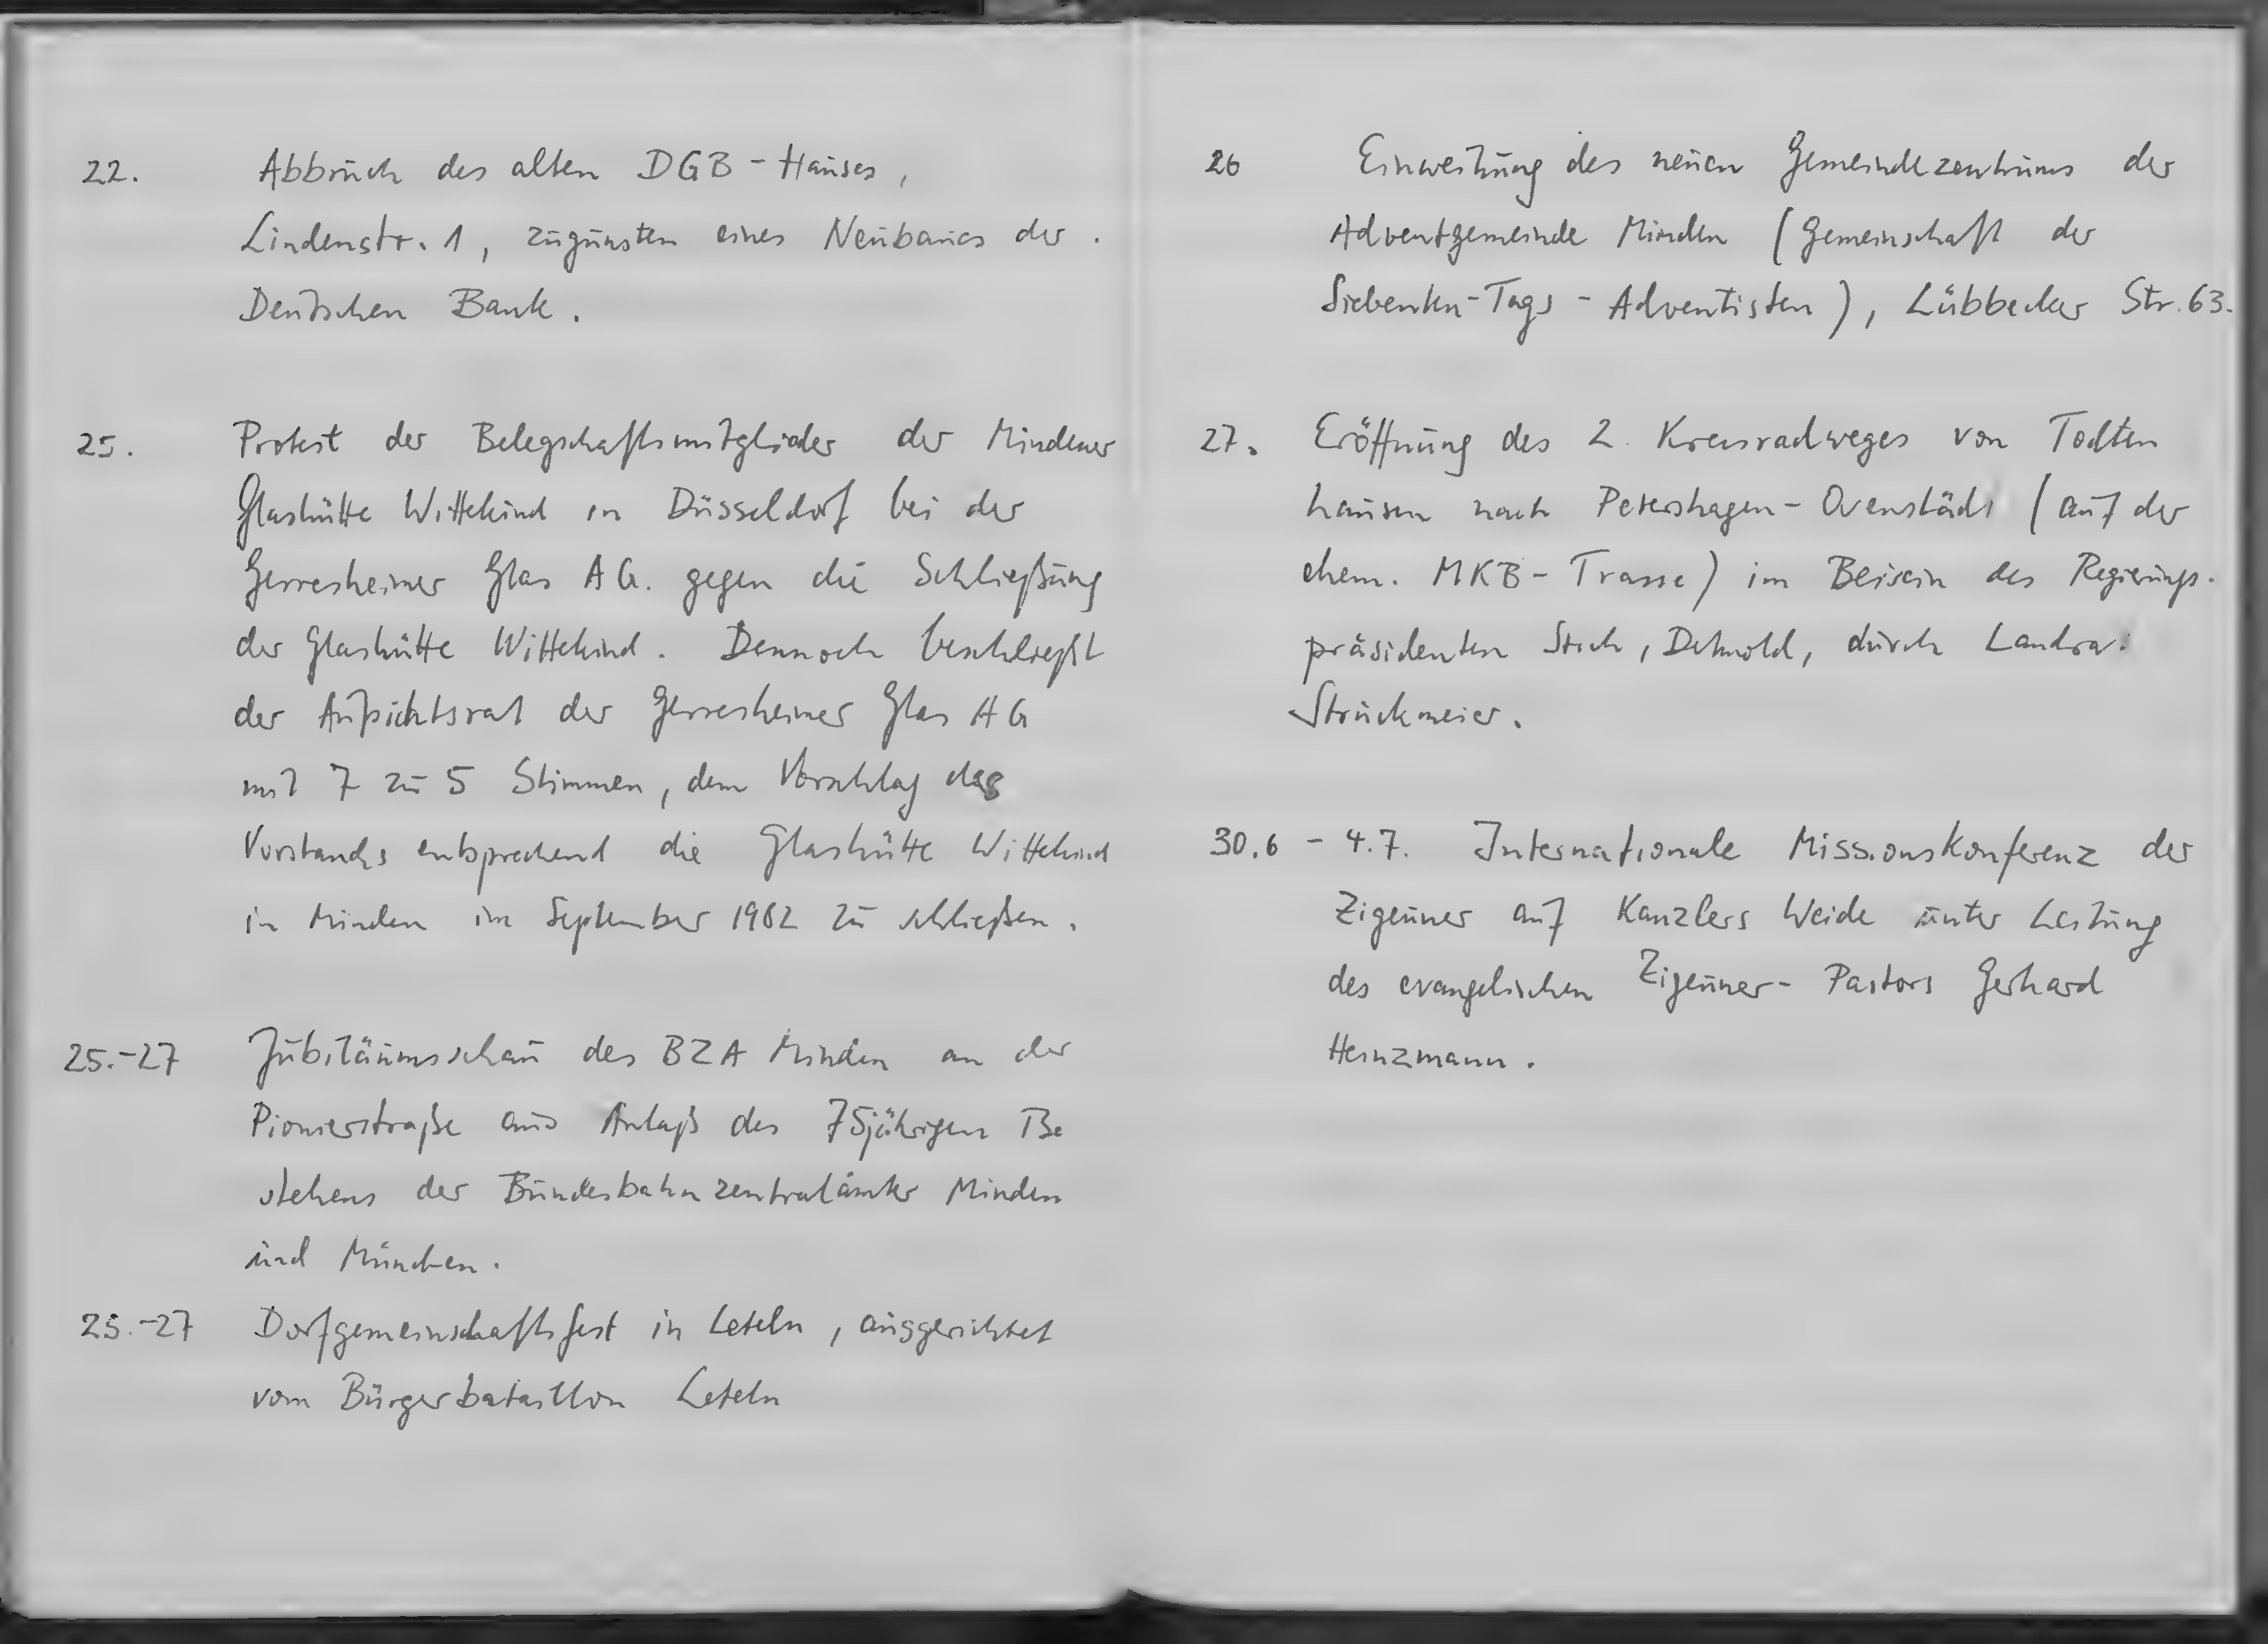 22. Abbruch des alten DGB-Hauses,
Lindenstr. 1, zugunsten eines Neubaues der
Deutschen Bank.
25. Protest der Belegschaftsmitglieder der Mindener
Glashütte Wittekind in Düsseldorf bei der
Gerresheimer Glas AG. gegen die Schließung
der Glashütte Wittekind. Dennoch beschließt
der Aufsichtsrat der Gerresheimer Glas AG
mit 7 zu 5 Stimmen, dem Vorschlag des
Vorstands entsprechend die Glashütte Wittekind
in Minden im September 1982 zu schließen.
25.-27 Jubiläumsschau des BZA Minden an der
Pionierstraße aus Anlaß des 75jährigen Be
stehens der Bundesbahnzentralämter Minden
und München.
25.-27 Dorfgemeinschaftsfest in Leteln, ausgerichtet
vom Bürgerbataillon Leteln
26 Einweihung des neuen Gemeindezentrums der
Adventgemeinde Minden (Gemeinschaft der
Siebenten-Tags-Adventisten), Lübbecker Str. 63.
27. Eröffnung des 2. Kreisradweges von Todten
hausen nach Petershagen-Ovenstädt (auf der
ehem. MKB-Trasse) im Beisein des Regierungs-
präsidenten Stich, Detmold, durch Landrat
Struckmeier.
30.6 - 4.7. Internationale Missionskonferenz der
Zigeuner auf Kanzlers Weide unter Leitung
des evangelischen Zigeuner-Pastors Gerhard
Heinzmann.